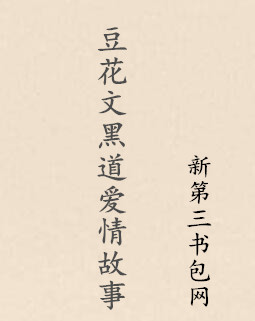 豆花文黑道爱情故事
新第三书包网